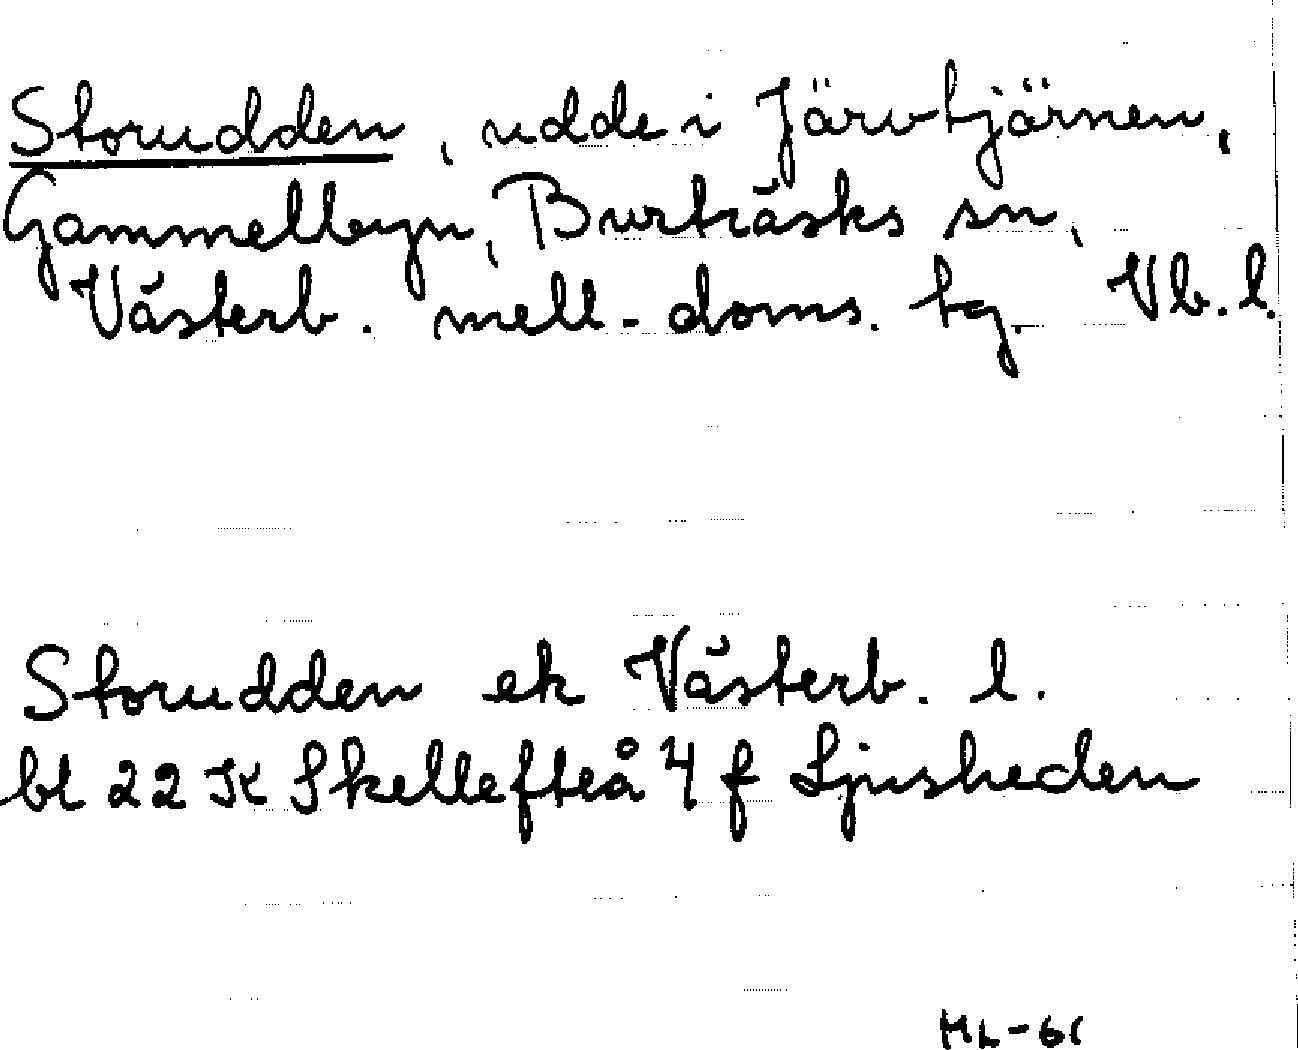 Storudden, udde i Järvtjärnen,
Gammelbyn, Burträsks sn,
Västerb. mell. doms. tg. Vb. l.
Storudden ek Västerb. l.
bl 22 K Skellefteå 4 f Ljusheden
ML-61